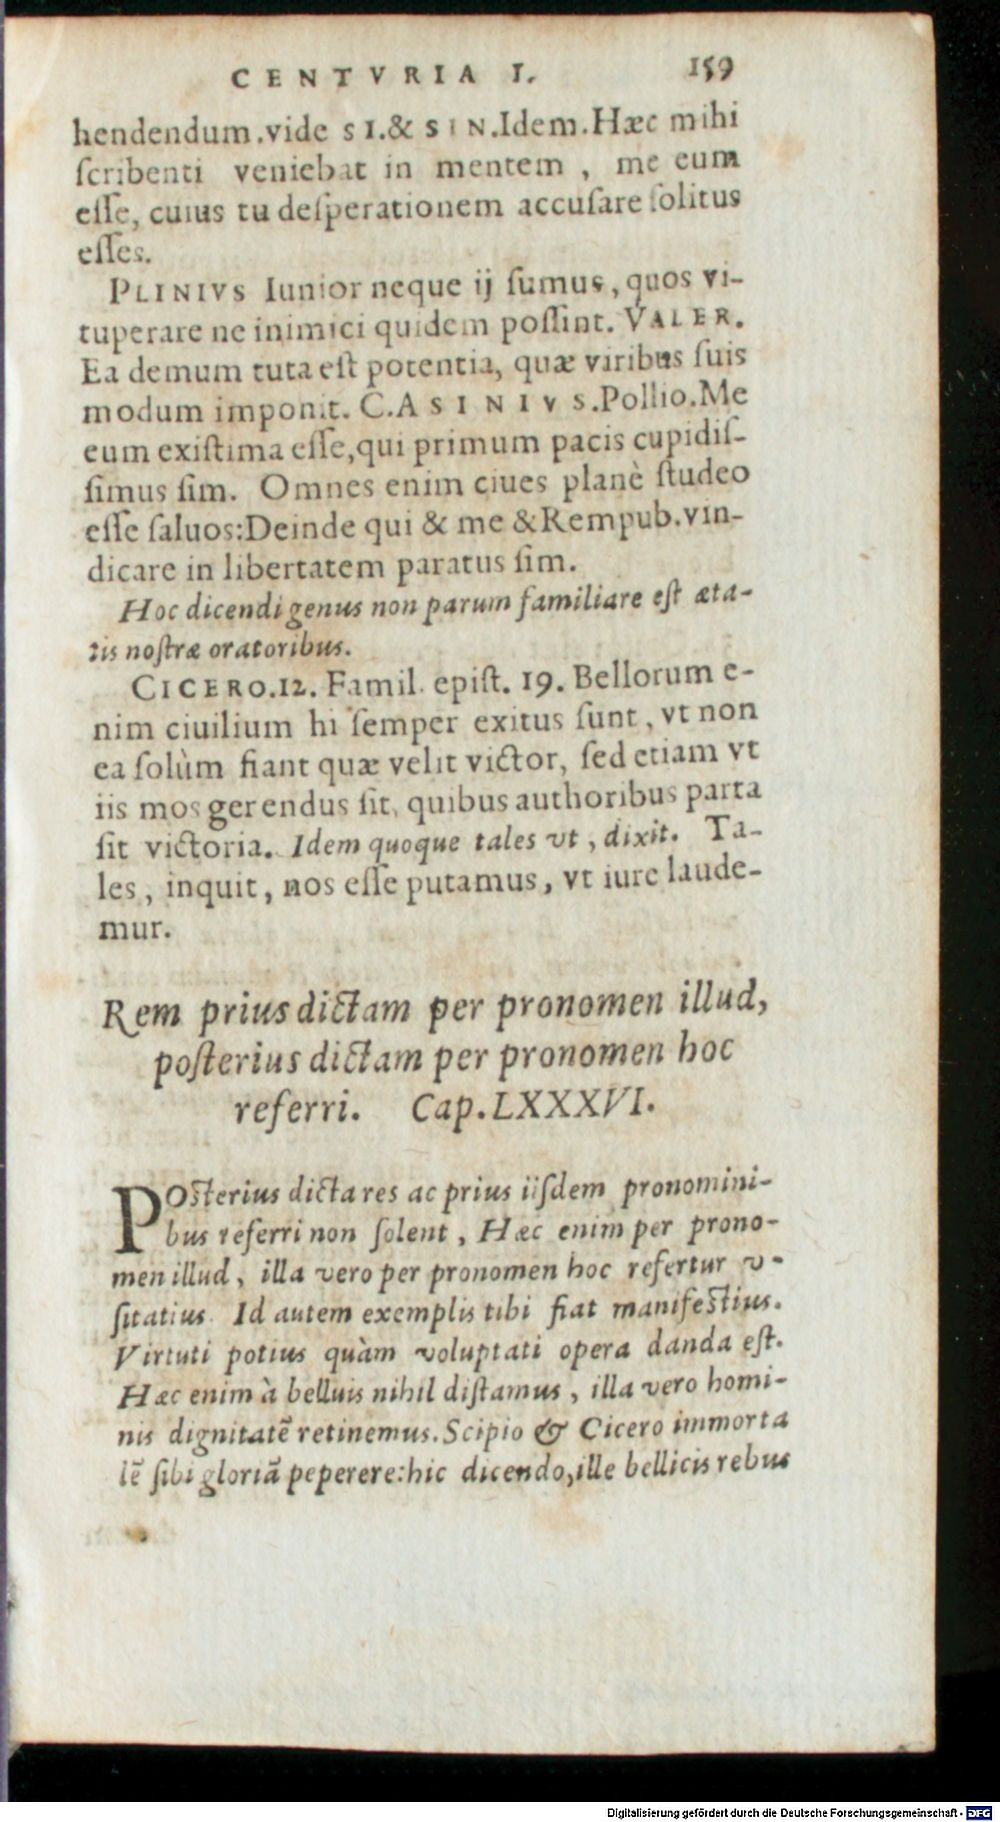 CENTVRIA I. 159
hendendum.vide SI.& SIN.Idem.Hæc mihi
ſcribenti veniebat in mentem , me eum
eſſe, cuius tu deſperationem accuſare ſolitus
eſſes.
PLINIVS Iunior neque ij ſumus, quos vi-
tuperare ne inimici quidem poſſint. VALER.
Ea demum tuta eſt potentia, quæ viribus ſuis
modum imponit. C.ASINIVS.Pollio.Me
eum exiſtima eſſe,qui primum pacis cupidiſ-
ſimus ſim. Omnes enim ciues planè ſtudeo
eſſe ſaluos:Deinde qui & me &Rempub.vin-
dicare in libertatem paratus ſim.
Hoc dicendi genus non parum familiare eſt æta-
tis noſtræ oratoribus.
CICERO.12. Famil. epiſt. 19. Bellorum e-
nim ciuilium hi ſemper exitus ſunt, vt non
ea ſolùm fiant quæ velit victor, ſed etiam vt
iis mos gerendus ſit, quibus authoribus parta
ſit victoria. Idem quoque tales vt, dixit. Ta-
les, inquit, nos eſſe putamus, vt iure laude-
mur.
Rem prius dictam per pronomen illud,
poſterius dictam per pronomen hoc
referri. Cap.LXXXVI.
POſterius dicta res ac prius iiſdem pronomini-
bus referri non ſolent, Hæc enim per prono-
men illud, illa vero per pronomen hoc refertur v-
ſitatius. Id autem exemplis tibi fiat manifeſtius.
Virtuti potius quàm voluptati opera danda eſt.
Hæc enim à belluis nihil diſtamus, illa vero homi-
nis dignitatẽ retinemus.Scipio & Cicero immorta
lẽ ſibi gloriã peperere:hic dicendo,ille bellicis rebus
Digitalisierung gefördert durch die Deutsche Forschungsgemeinschaft - DFG